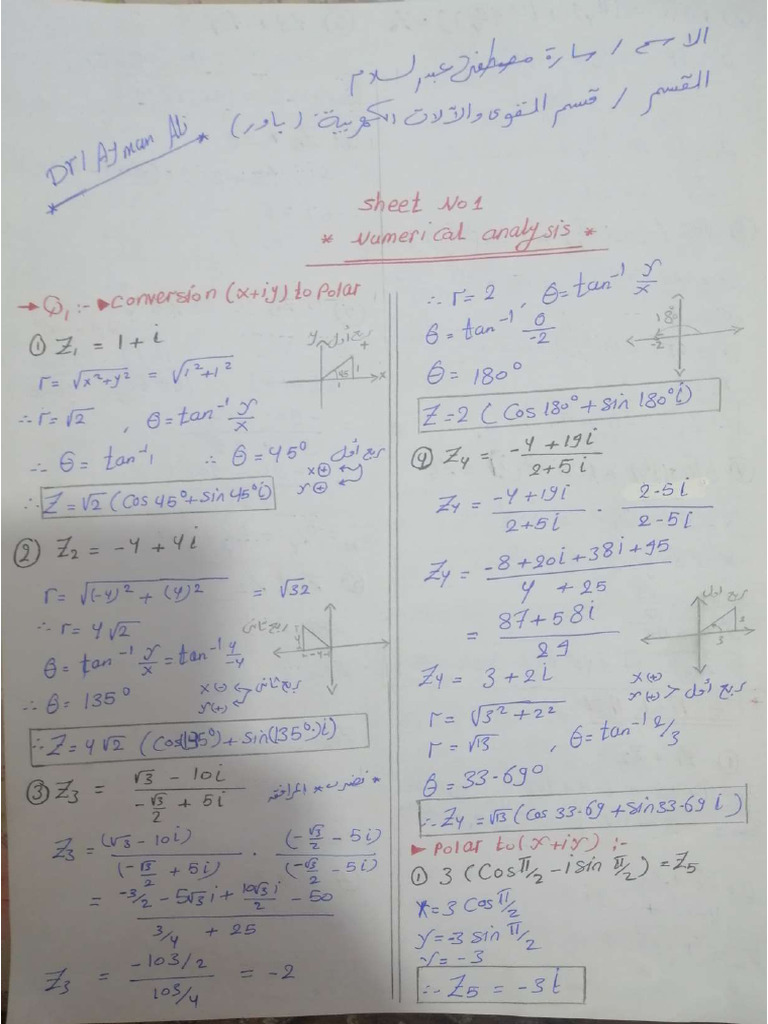 الاسم / سارة مصطفى عبدالسلام
القسم / قسم القوى والآلات الكهربية (باور)
Dr/ Ayman Ali *
*
Sheet No 1
* Numerical analysis *
→ Q1 :- ▶ Conversion (x+iy) to Polar
① Z1 = 1 + i
r = √x²+y² = √1²+1²
y ربع أول +
45 1
1 x
∴ r = √2 , θ = tan⁻¹ y/x
∴ θ = tan⁻¹ 1 ∴ θ = 45° ربع أول
x ⊕
y ⊕
∴ Z = √2 (Cos 45° + sin 45° i)
② Z2 = -4 + 4i
r = √(-4)² + (4)² = √32
∴ r = 4√2
ربع ثاني
θ = tan⁻¹ y/x = tan⁻¹ 4/-4
-4-
∴ θ = 135° x ⊖ ربع ثاني
y ⊕
∴ Z = 4√2 (Cos(135°) + Sin(135°) i)
③ Z3 = √3 - 10i / -√3/2 + 5i
* نضرب * المرافق
Z3 = (√3 - 10i) / (-√3/2 + 5i) . (-√3/2 - 5i) / (-√3/2 - 5i)
= -3/2 - 5√3 i + 10√3 i/2 - 50 / 3/4 + 25
Z3 = -103/2 / 103/4 = -2
∴ r = 2 , θ = tan⁻¹ y/x
θ = tan⁻¹ 0/-2
180
-2
θ = 180°
Z = 2 (Cos 180° + sin 180° i)
④ Z4 = -4 + 19i / 2+5i
Z4 = -4 + 19i / 2+5i . 2-5i / 2-5i
Z4 = -8 + 20i + 38i + 95 / 4 + 25
ربع أول
= 87 + 58i / 29
3 2
Z4 = 3 + 2i
x ⊕
y ⊕ > ربع أول
r = √3² + 2²
r = √13 , θ = tan⁻¹ 2/3
θ = 33.69°
∴ Z4 = √13 (Cos 33.69 + sin 33.69 i)
▶ Polar to (x + iy) :-
① 3 (Cos π/2 - i sin π/2) = Z5
x = 3 Cos π/2
y = -3 sin π/2
y = -3
∴ Z5 = -3i